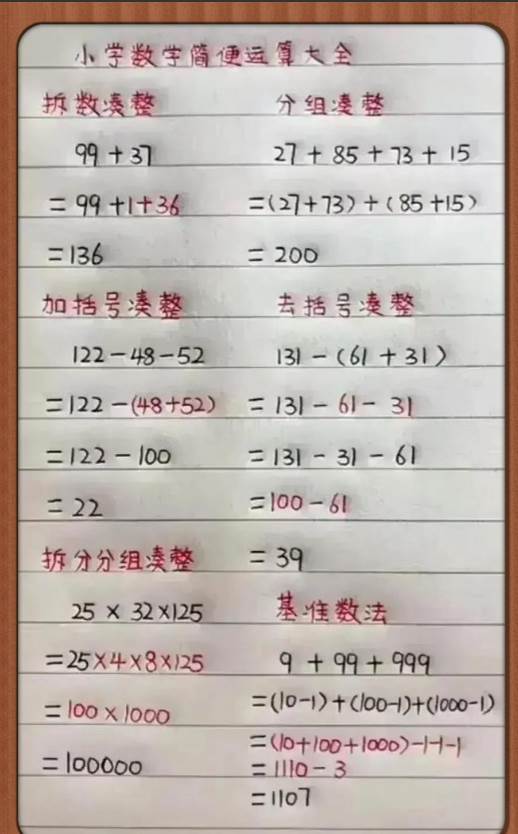 小学数学简便运算大全
拆数凑整
99+37
=99+1+36
=136
分组凑整
27+85+73+15
=(27+73)+(85+15)
=200
加括号凑整
122-48-52
=122-(48+52)
=122-100
=22
去括号凑整
131-(61+31)
=131-61-31
=131-31-61
=100-61
=39
拆分分组凑整
25×32×125
=25×4×8×125
=100×1000
=100000
基准数法
9+99+999
=(10-1)+(100-1)+(1000-1)
=(10+100+1000)-1-1-1
=1110-3
=1107